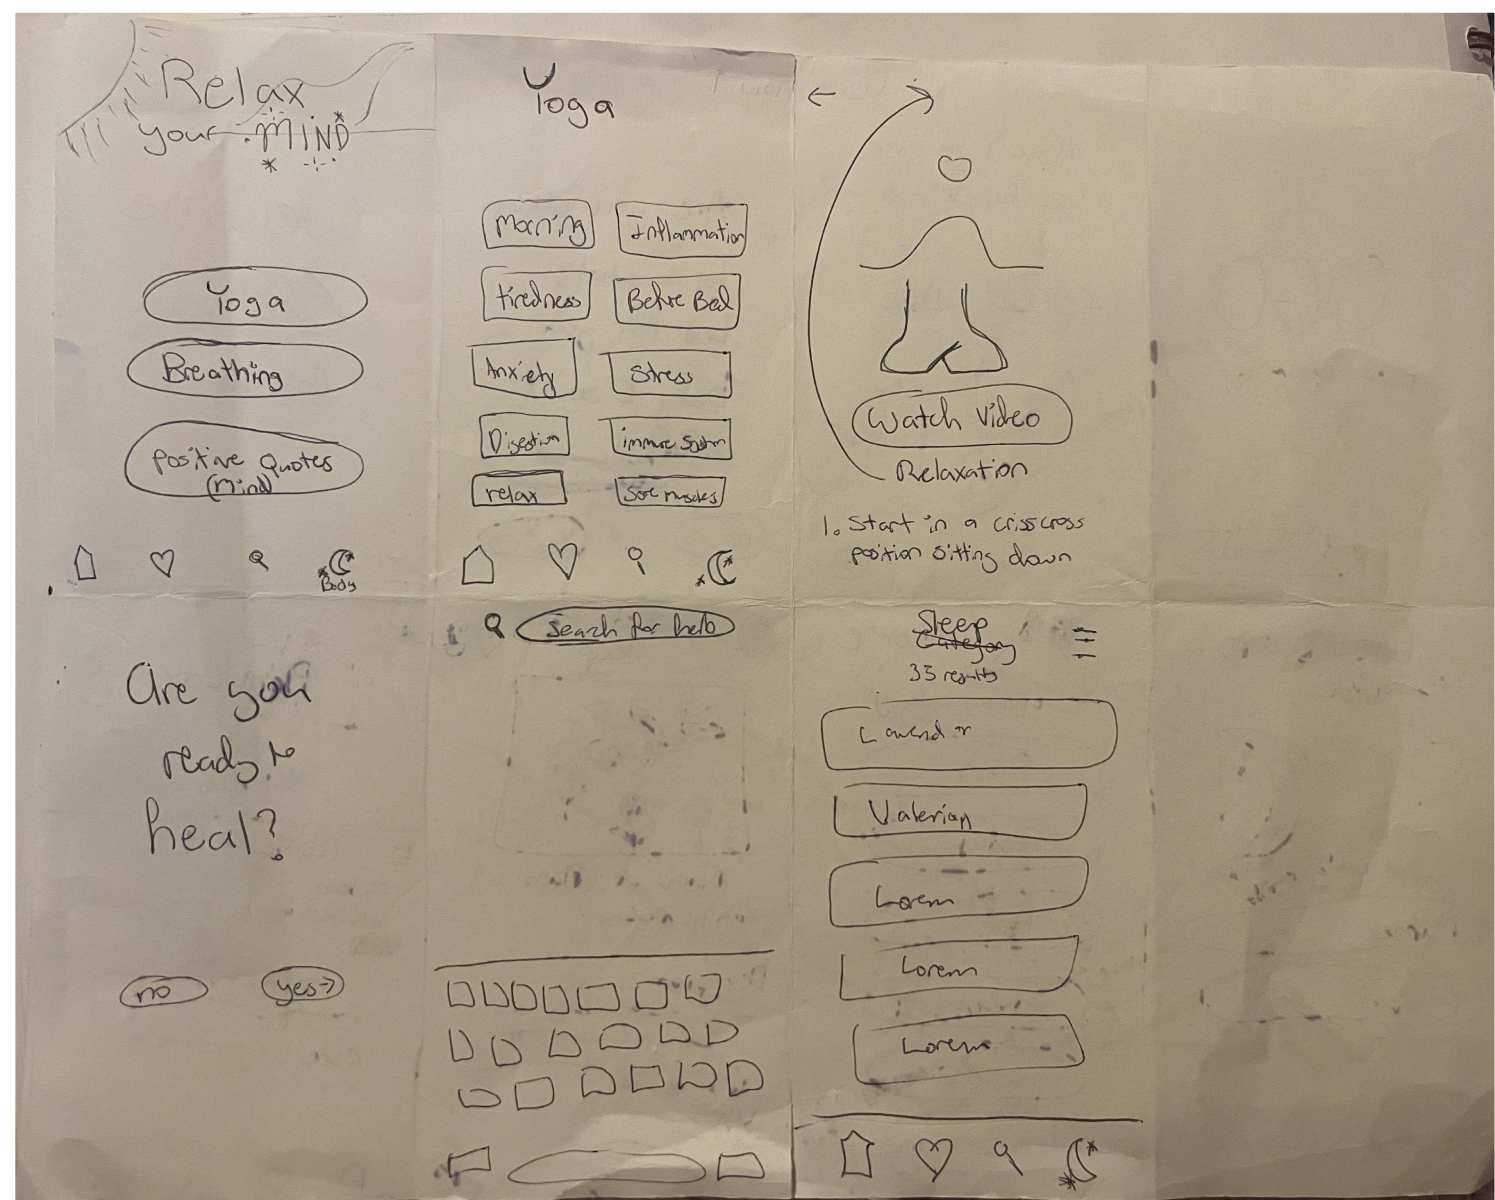 Relax
your MIND
Yoga
Breathing
Positive Quotes
(Mind)
Body
Yoga
Morning
Inflammation
tiredness
Before Bed
Anxiety
Stress
Digestion
immune System
relax
Sore muscles
Watch Video
Relaxation
1. Start in a crisscross
position sitting down
Are you
ready to
heal?
no
yes
Search for herb
Sleep
Category
35 results
Lavendr
Valerian
Lorem
Lorem
Lorem